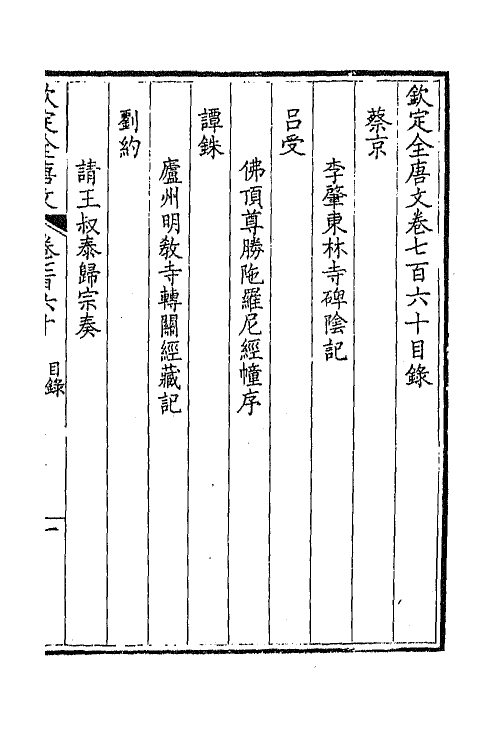 欽定全唐文卷七百六十目錄
蔡京
李肇東林寺碑陰記
呂受
佛頂尊勝陁羅尼經幢序
譚銖
廬州明教寺轉關經藏記
劉約
請王叔泰歸宗奏
欽定全唐文 卷七百六十 目錄 一